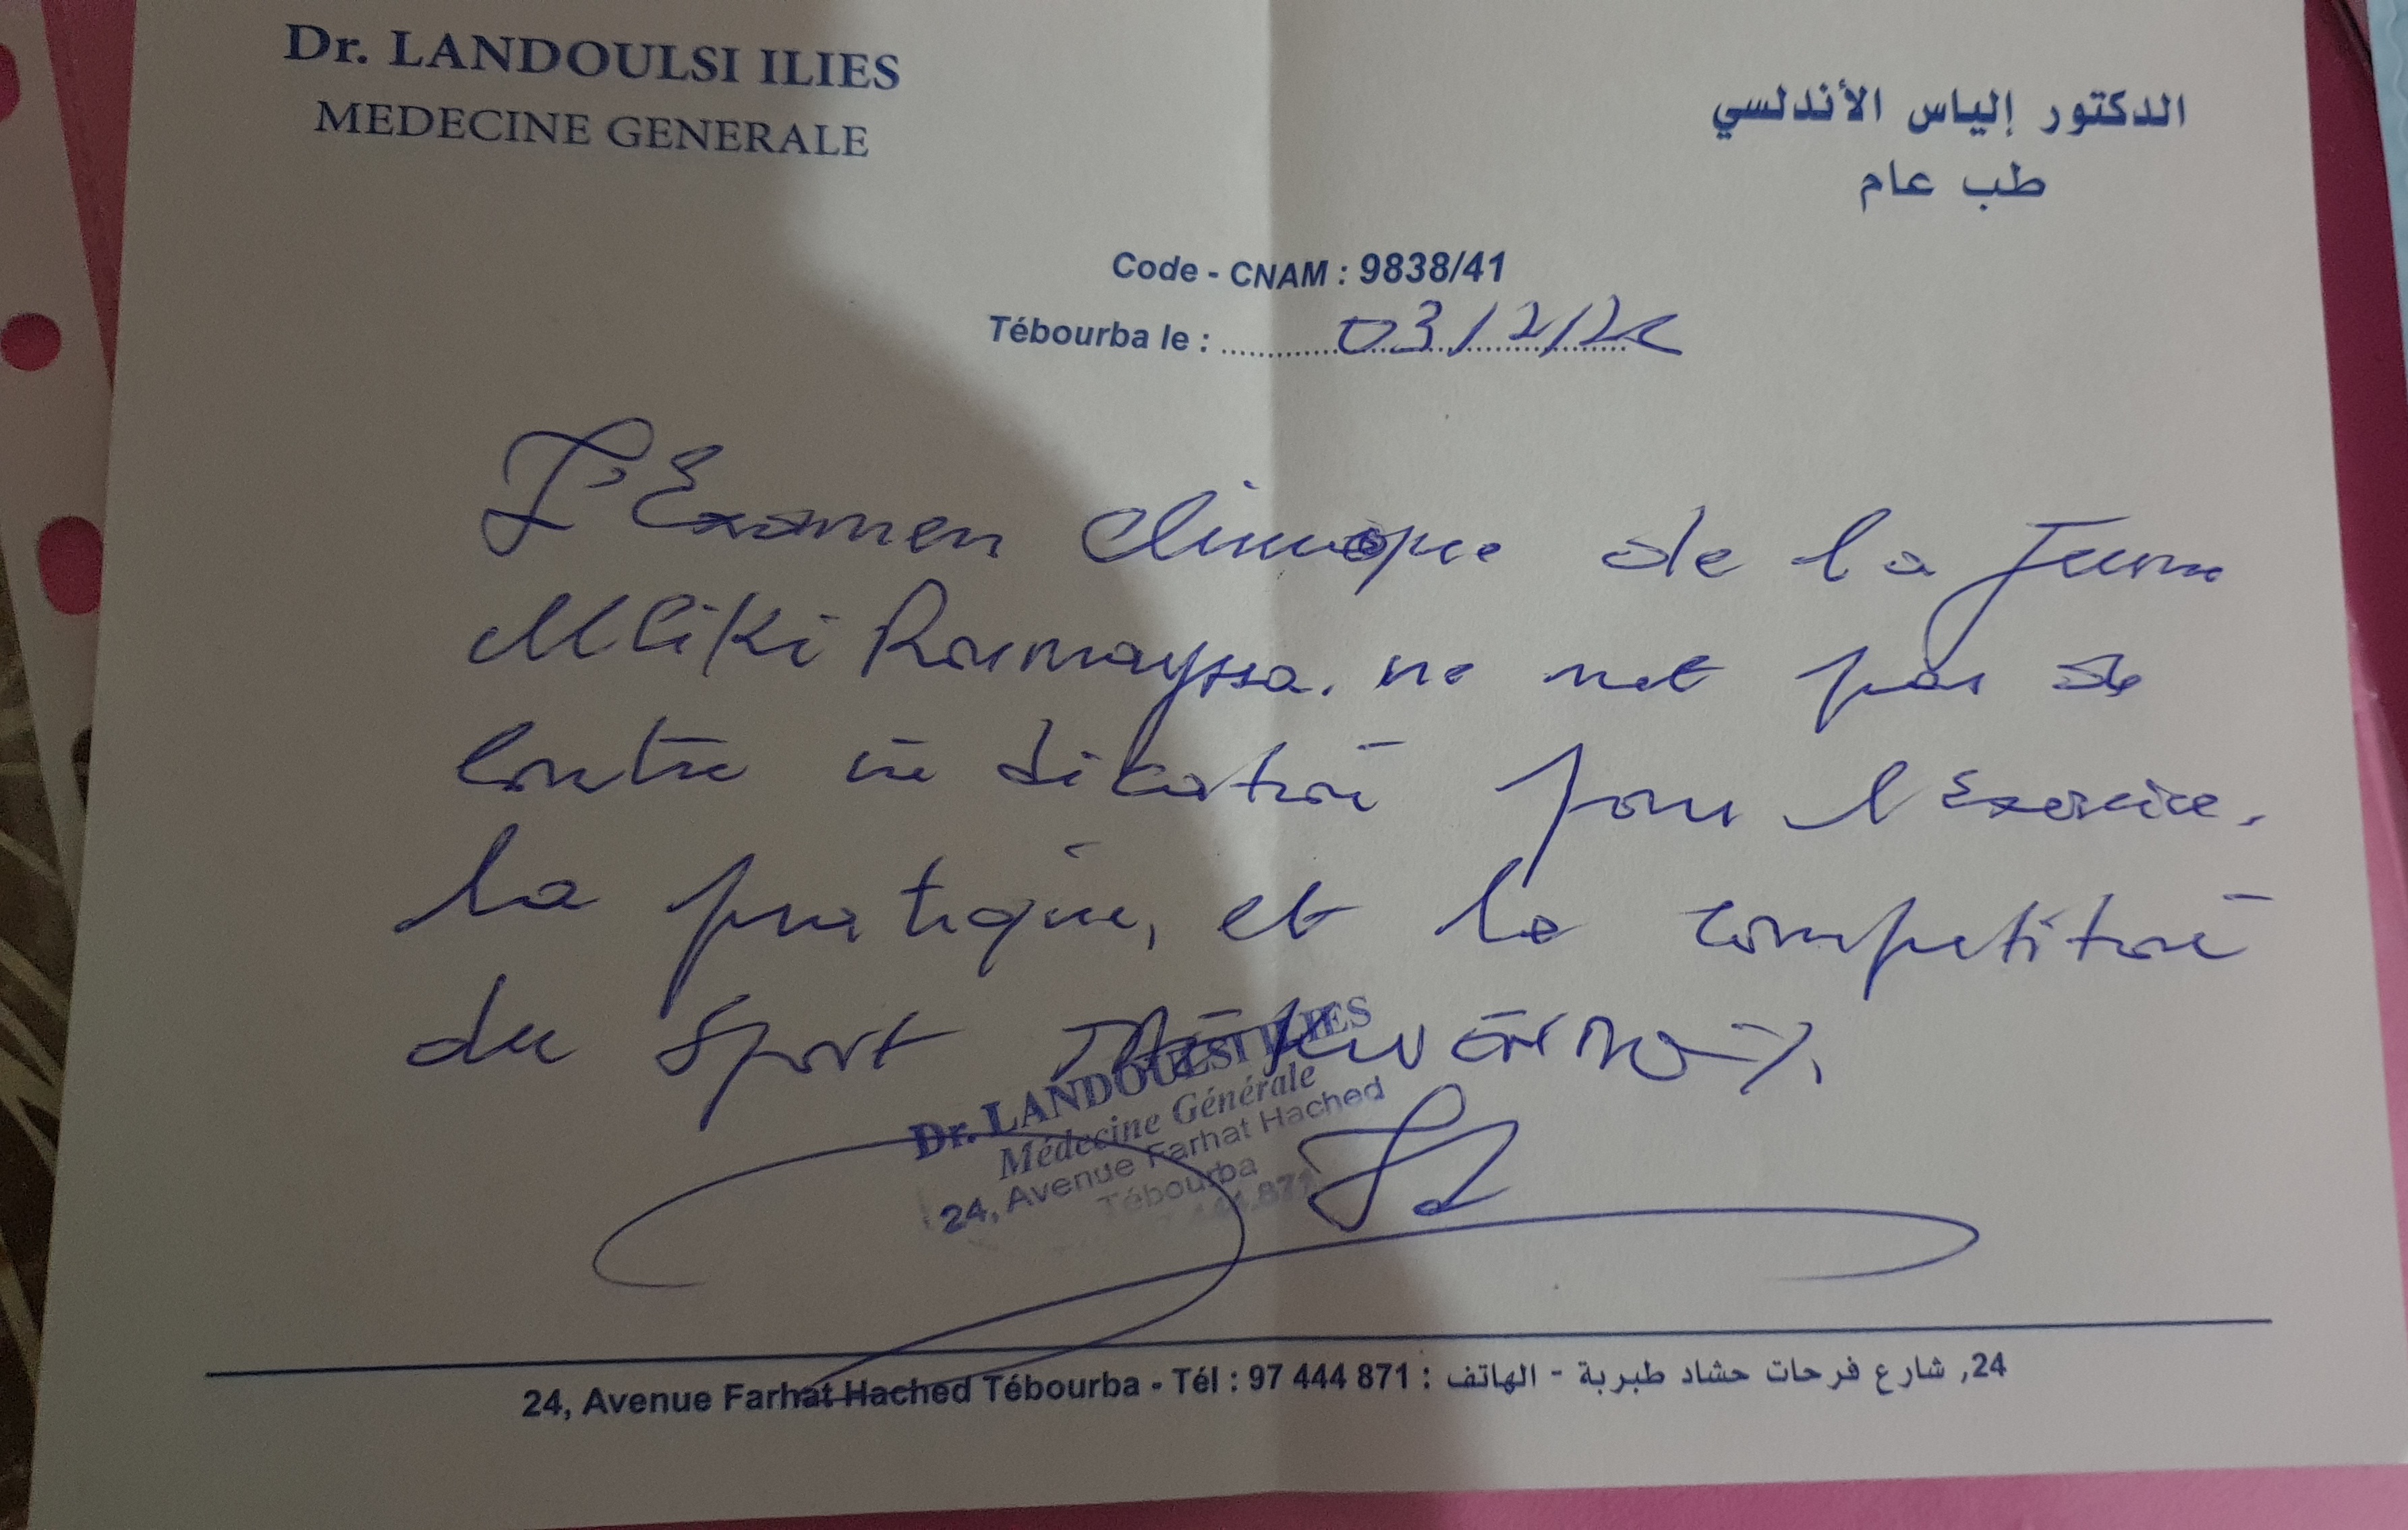 Dr. LANDOULSI ILIES
MEDECINE GENERALE
الدكتور إلياس الأندلسي
طب عام
Code - CNAM : 9838/41
Tébourba le : 03/2/2
L'Examen clinique de la Jeune
Mliki Roumayssa. ne met pas de
contre indication pour l'Exercice,
la pratique, et la competition
du Sport
Dr. LANDOULSI ILIES
Médecine Générale
24, Avenue Farhat Hached
Tébourba
44.871
24, Avenue Farhat Hached Tébourba - Tél : 97 444 871 : الهاتف - شارع فرحات حشاد طبربة ,24